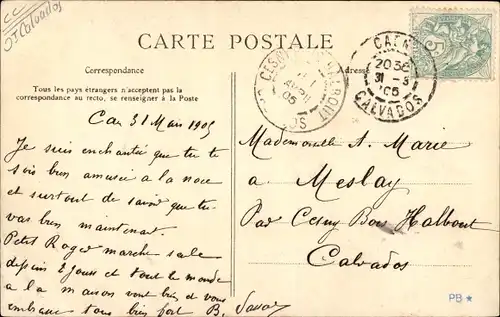 CC
Jt Calvados
CARTE POSTALE
Correspondance
Adresse
Tous les pays étrangers n'acceptent pas la
correspondance au recto, se renseigner à la Poste
CESNY BOIS HALBOUT
05
CAEN
20 35
31 - 3
05
CALVADOS
5
Caen 31 Mars 1905
Je suis enchantée que tu te
sois bien amusée à la noce
et surtout de savoir que tu
vas bien maintenant.
Petit Roger marche seule
depuis 2 jours et tout le monde
à la maison vont bien et vous
embrasse tous bien fort B.
Mademoiselle A. Marie
a Meslay
Par Cesny Bois Halbout
Calvados
PB ★